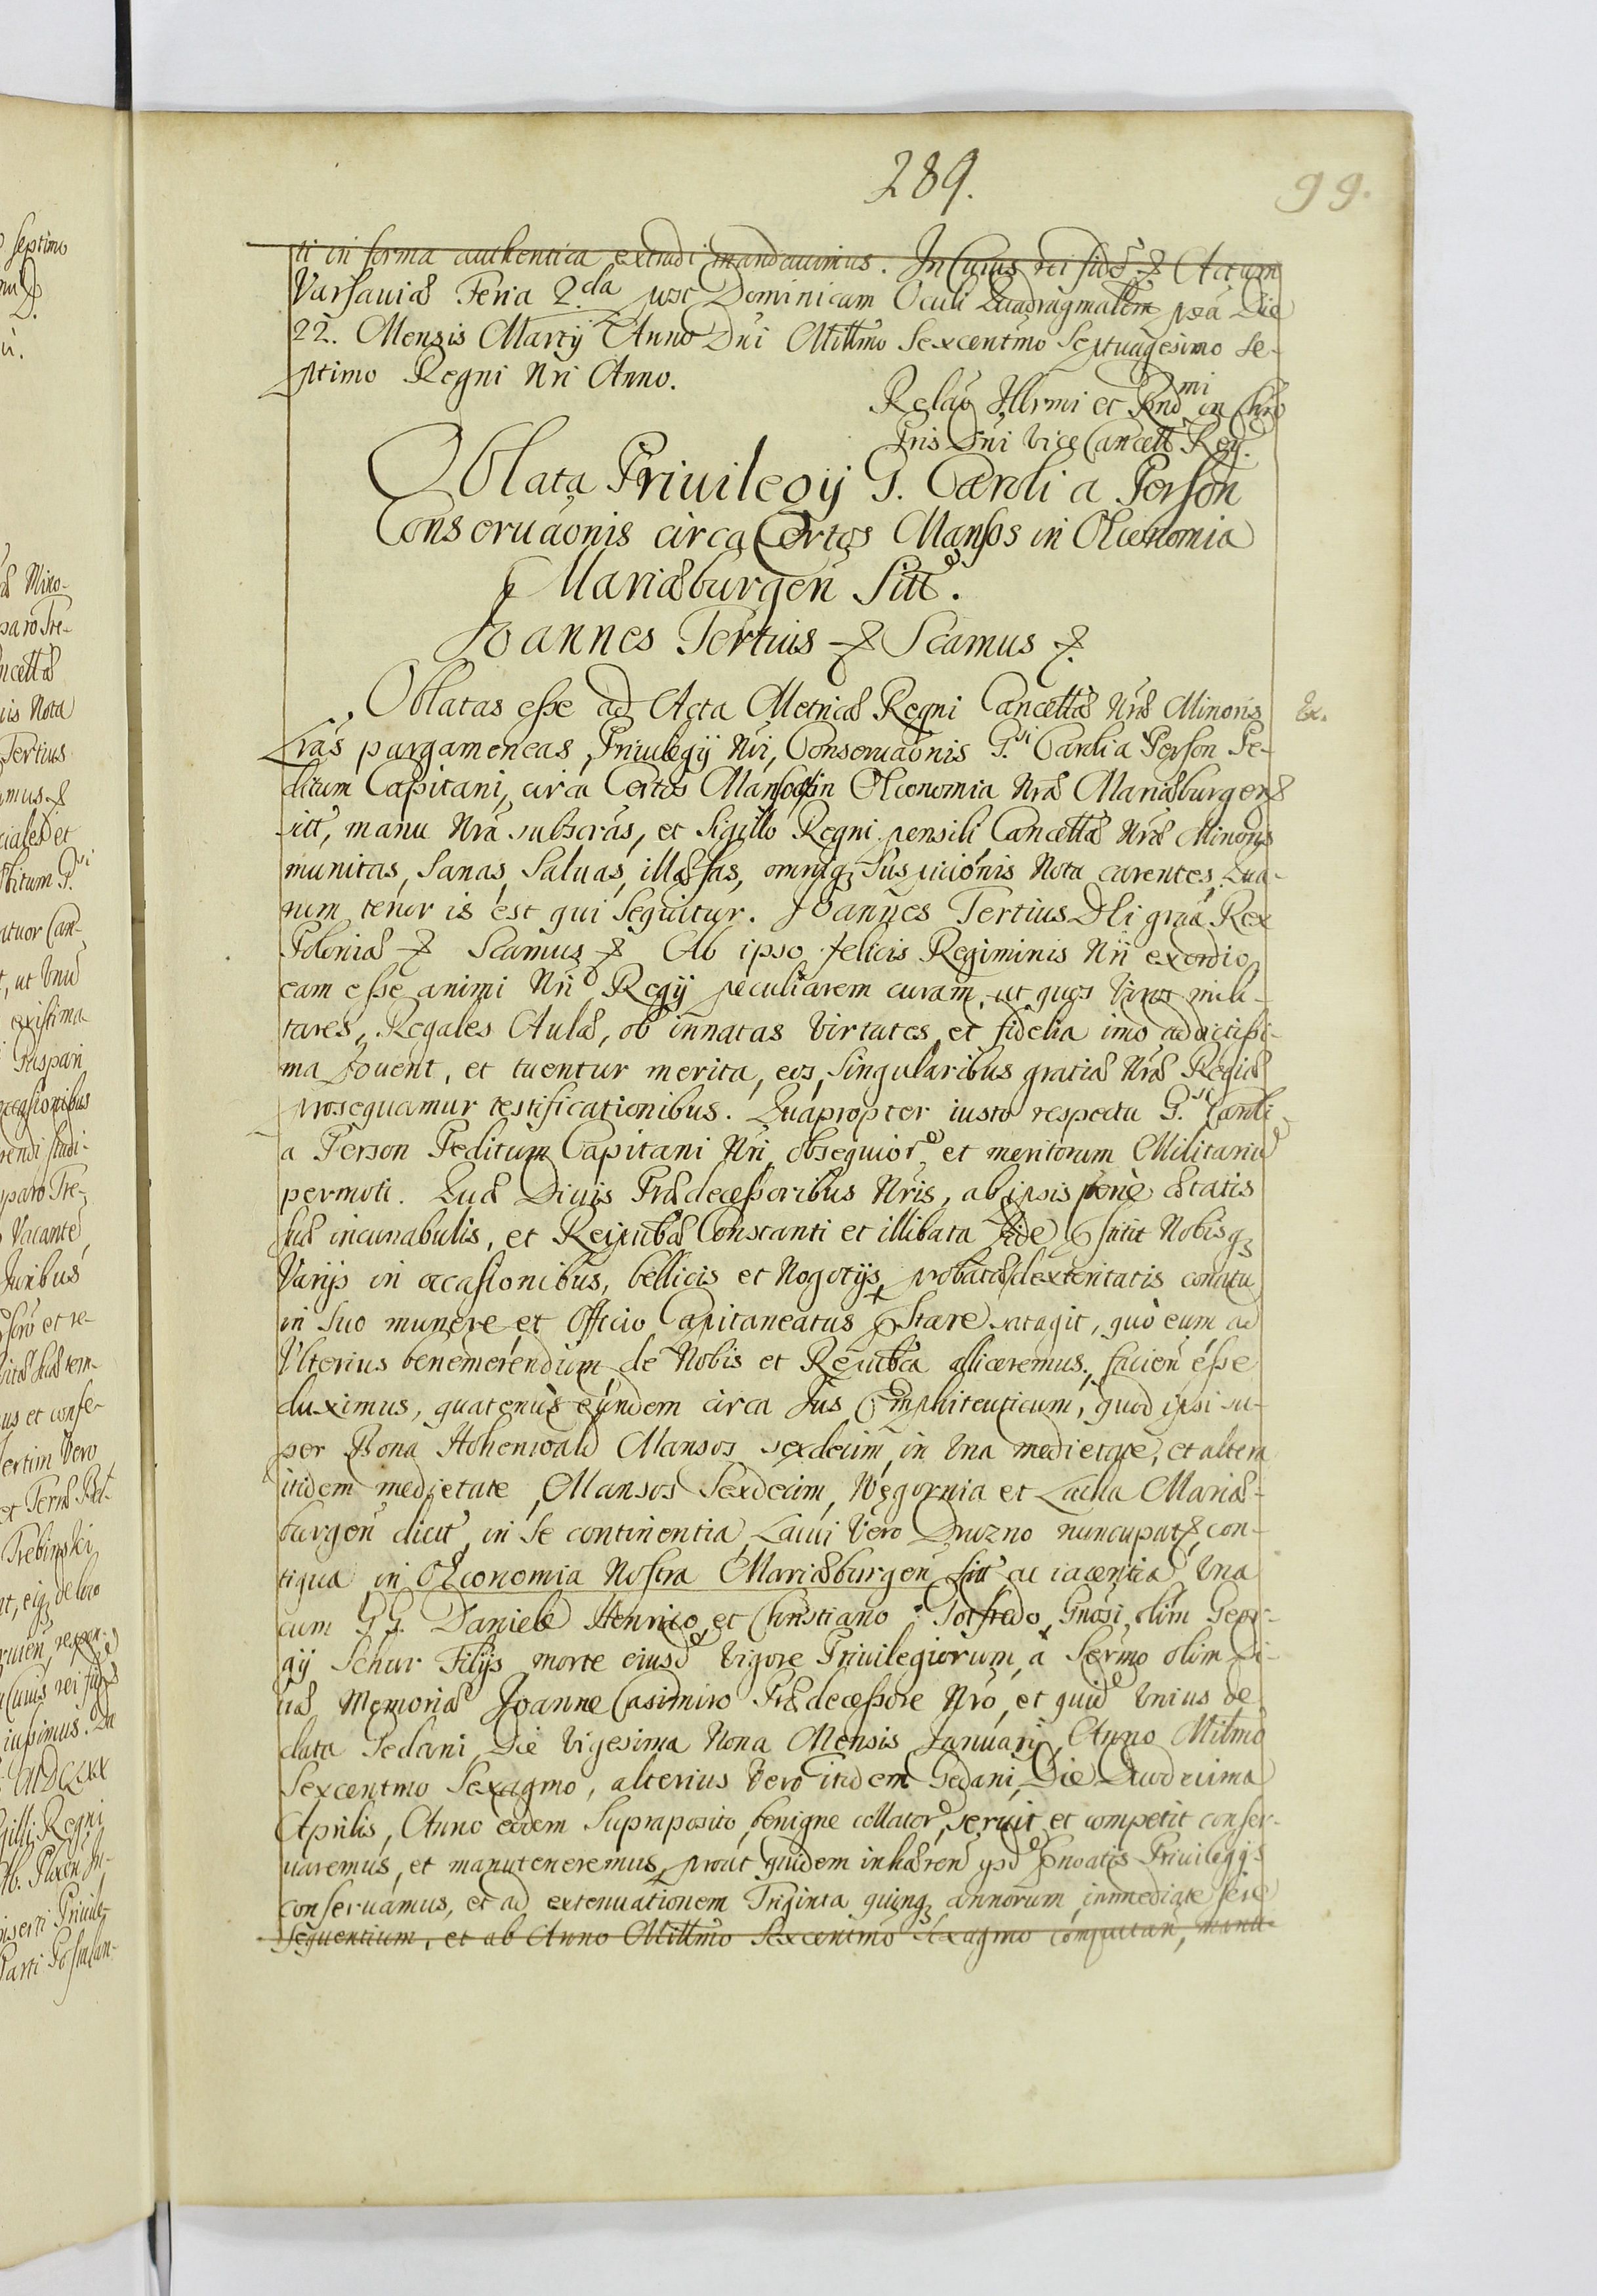 289.
99.
ti in forma authentica extradi mandavimus. In Cuius rei fidẽ &. Actum
Varsaviæ Feria 2.da post Dominicam Oculi Quadragmalem pxã Die
22. Mensis Martij Anno Dni Millmo Sexcentmo Septuagesimo Se-
ptimo Regni Nri Anno.
Relão Illrmi et Rndmi in Chro
Pris Dni Vice Cancell Reg.
Oblata Privilegij G. Caroli a Person
Conservãonis circa Certos Mansos in Olconomia
Mariæburgen̄ Sitt.
Joannes Tertius & Scamus &.
Oblatas esse ad Acta Metricæ Regni Cancellæ Nræ Minoris
Ex.
Lrãs pargameneas, Privilegij Nri, Conservãonis G.si Caroli a Person Pe-
ditum Capitani, circa Certos Mansos in Olconomia Nræ Mariæburgen̄
sitt, manu Nrã subscrãs, et Sigillo Regni pensili Cancellæ Nræ Minoris
munitas, Sanas, Salvas, illæsas, omniq; Suspicionis Nota carentes, Qua-
rum tenor is est qui Sequitur. Joannes Tertius DEi grãa Rex
Poloniæ & Scamus & Ab ipso felicis Regiminis Nri exordio
eam esse animi Nri Regij peculiarem curam, ut quos Viros mili-
tares, Regales Aulæ, ob innatas Virtutes, et fidelia imo addictissi-
ma fovent, et tuentur merita, eos, Singularibus gratiæ Nræ Regiæ
prosequamur testificationibus. Quapropter iusto respectu G.si Caroli
a Person Peditum Capitani Nri, obsequior et meritorum Militariũ
permoti. Quæ Divis Prædecessoribus Nris, ab ipsis penè ætatis
suæ incunabulis, et Reipubcæ Constanti et illibata fide pstitit Nobisq;
Varijs in occasionibus, bellicis et Nogotijs, probatæ dexteritatis conatu
in Suo munere et Officio Capitaneatus pstare satagit, quò eum ad
Ulterius benemerendum de Nobis et Reipubca alliceremus, facien̄ esse
duximus, quatenus eundem circa Jus Emphiteuticum, quod ipsi su-
per Bona Hohenwald Mansos sexdecim in Una medietate, et altera
itidem medietate, Mansos Sexdecim, Węgornia et Lacha Mariæ-
burgen̄ dict, in Se continentia, Lacui Vero Druzno nuncupat, con-
tigua in Olconomia Nostra Mariæburgen̄ sitt ac iacentia Una
cum G.G. Daniele Henrico, et Christiano Gotfredo, Gnosi olim Geor-
gij Schur Filijs morte eiusd Vigore Privilegiorum, a Sermo olim Di-
væ Memoriæ Joanne Casimiro Prædecessore Nrõ, et quid Unius de
data Gedani Die Vigesima Nona Mensis Januarij, Anno Milmo
Sexcentmo Sexagmo, alterius Vero itidem Gedani, Die Duodecima
Aprilis, Anno eodem Supraposito, benigne collator, servit et competit conser-
varemus, et manuteneremus, prout quidem inhæren̄ Privilegijs
conservamus, et ad extenuationem Triginta quinq; annorum immediate sese
Sequentium, et ab Anno Millmo Sexcentmo Sexagmo computan, manu-